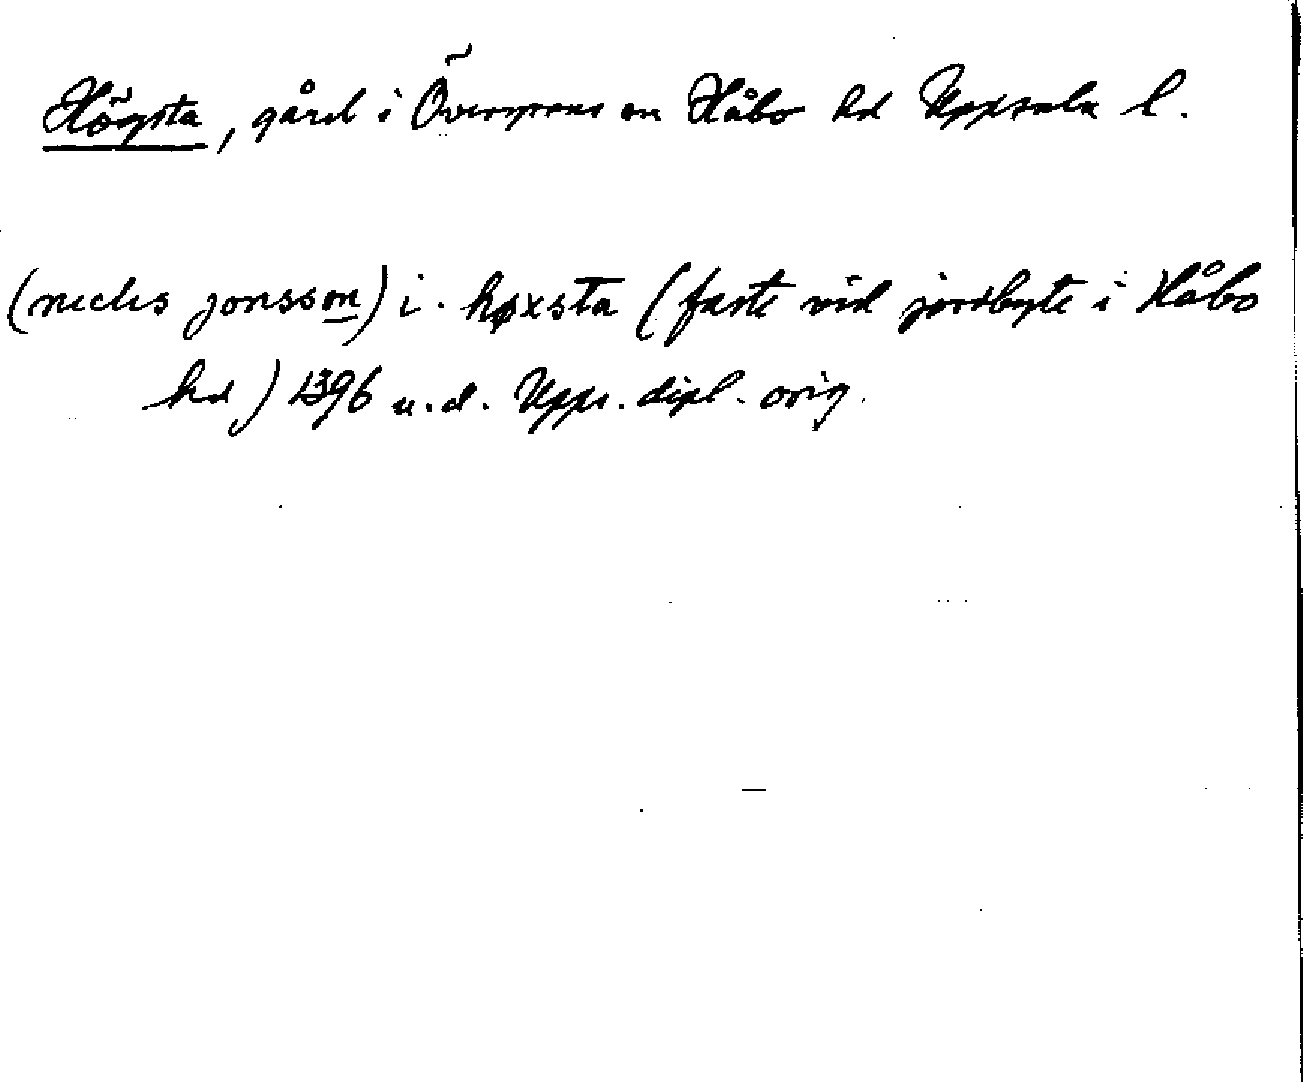 Högsta, gård i Övergrans sn Håbo hd Uppsala l.
(niclis jonsson) i. høxsta (faste vid jordbyte i Håbo
hd) 1396 u.d. Upps. dipl. orig.